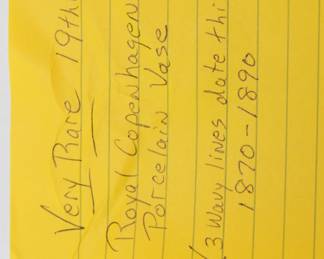 Very Rare 19th
Royal Copenhagen
Porcelain Vase
3 wavy lines date thi
1870-1890